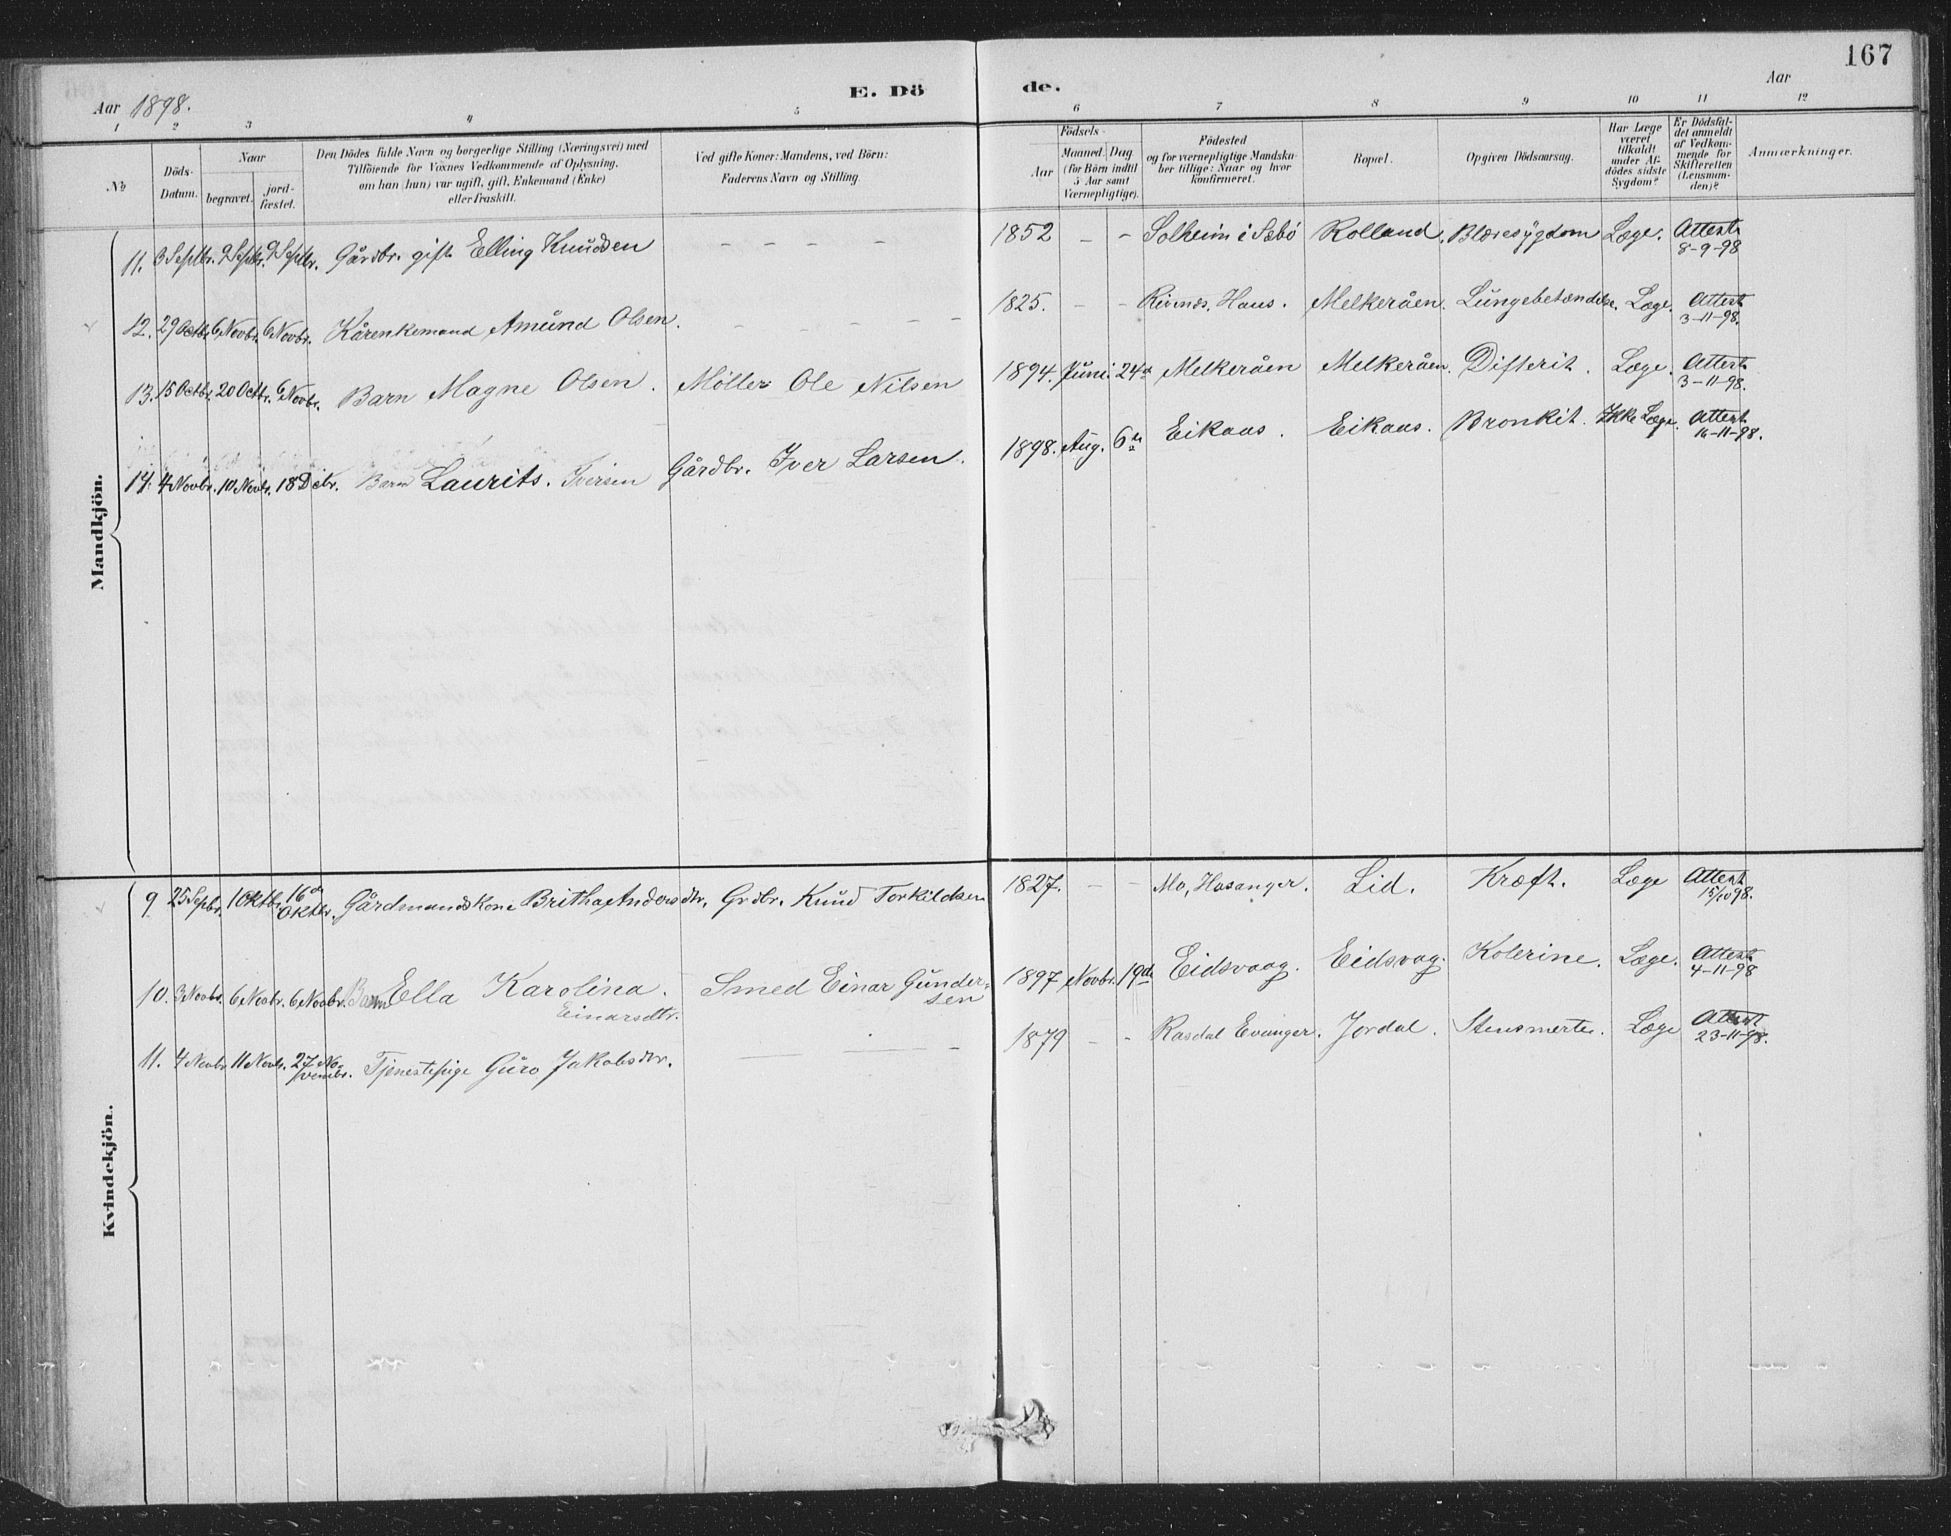 167
E. Dö de.
Aar 1898.
Aar
1 2 3 4 5 6 7 8 9 10 11 12
№
Döds-Datum.
Naar
begravet.
jord-fæstet.
Den Dödes fulde Navn og borgerlige Stilling (Næringsvei) med
Tilföiende for Voxnes Vedkommende af Oplysning,
om han (hun) var ugift, gift, Enkemand (Enke)
eller fraskilt.
Ved gifte Koner: Mandens, ved Börn:
Faderens Navn og Stilling.
Födsels-
Aar
Maaned. Dag
(for Börn indtil
5 Aar samt
Værnepligtige).
Födested
og for værnepligtige Mandska-
ber tillige: Naar og hvor
konfirmeret.
Bopæl.
Opgiven Dödsaarsag.
Har Læge
været
tilkaldt
under Af-
dödes sidste
Sygdom?
Er Dödsfal-
det anmeldt
af Vedkom-
mende for
Skifteretten
(Lensman-
den)?
Anmærkninger.
Mandkjön.
11. 3 Septbr. 9 Septbr. 9 Septbr. Gårdbr. gift Elling Knudsen – – – – 1852 – – Solheim i Sæbö Rolland. Blæresygdom Læge. Attest 8-9-98
12. 29 Octbr. 6 Novbr. 6 Novbr. Kårenkemand Amund Olsen. – – – – – 1825. – – Haus. Melkeråen. Lungebetændelse. Læge. Attest 3-11-98.
13. 15 Octbr. 20 Octbr. 6 Novbr. Barn Magne Olsen. Möller Ole Nilsen 1894. Juni. 24d Melkeråen Melkeråen. Difterit. Læge. Attest 3-11-98.
14. 4 Novbr. 10 Novbr. 18 Dcbr. Barn Laurits. Iversen Gårdbr. Iver Larsen. 1898. Aug. 6te Eikaas. Eikaas. Bronkit. Ikke Læge. Attest 16-11-98.
Kvindekjön.
9 25 Sepbr. 1 Oktbr. 16d Oktbr. Gårdmandskone Britha Andersdtr. Grdbr. Knud Torkildsen 1827. – – Mo, Hosanger. Lid. Kræft. Læge Attest 15/10 98.
10. 3 Novbr. 6 Novbr. 6 Novbr. Barn Ella Karolina. Einarsdtr. Smed Einar Gundersen 1897 Novbr. 19de Eidsvaag. Eidsvag. Kolerine. Læge. Attest 4-11-98
11. 4 Novbr. 11 Novbr. 27 November. Tjenestepige Guro Jakobsdtr. – – – 1879 – – Rasdal Evanger. Jordal. Stensmerte. Læge Attest 23-11-98.